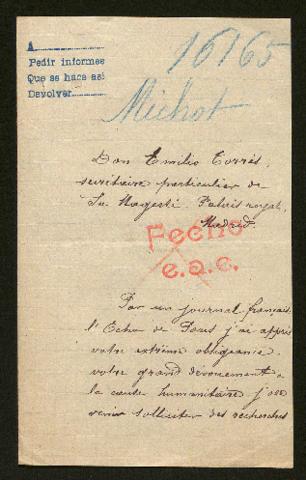 A
Pedir informes
Que se hace así
Devolver
16165
Michot
Don Emilio Torrès,
secrétaire particulier de
Sa Magesté. Palais royal,
Madrid.
Fecho
e.a.c.
Par un journal français
l'Echo de Paris j'ai appris
votre extrême obligeance
votre grand dévouement à
la cause humanitaire j'ose
venir solliciter des recherches